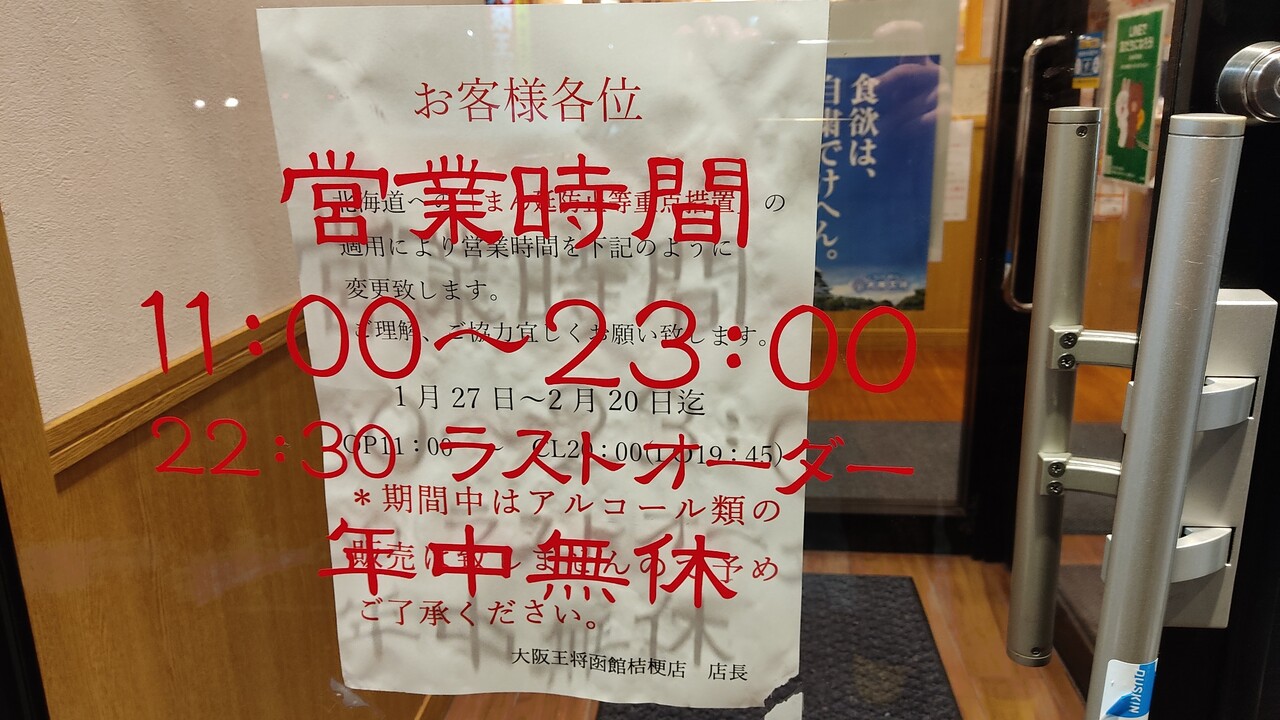 お客様各位
営業時間
北海道への「まん延防止等重点措置」の
適用により営業時間を下記のように
変更致します。
ご理解、ご協力宜しくお願い致します。
11:00～23:00
1月27日～2月20日迄
22:30 ラストオーダー
OP11:00 ～ CL20:00(LO19:45)
＊期間中はアルコール類の
年中無休
販売は致しませんので予め
ご了承ください。
大阪王将函館桔梗店 店長
食欲は、
自粛でけへん。
大阪王将
DUSKIN